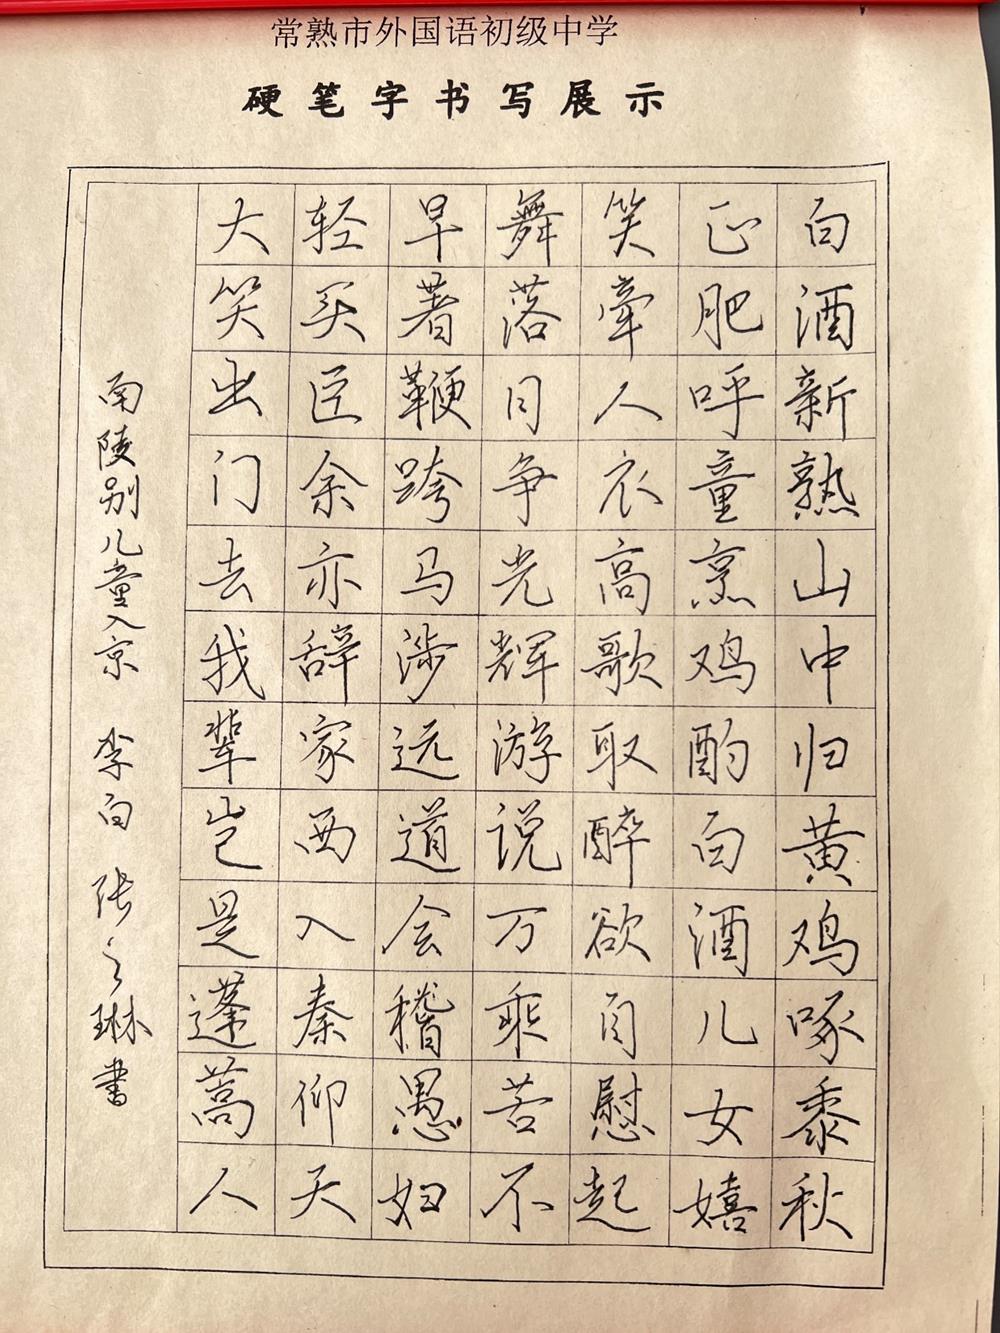 常熟市外国语初级中学
硬笔字书写展示
白酒新熟山中归黄鸡啄黍秋
正肥呼童烹鸡酌白酒儿女嬉
笑牵人衣高歌取醉欲自慰起
舞落日争光辉游说万乘苦不
早著鞭跨马涉远道会稽愚妇
轻买臣余亦辞家西入秦仰天
大笑出门去我辈岂是蓬蒿人
南陵别儿童入京 李白 张之琳书